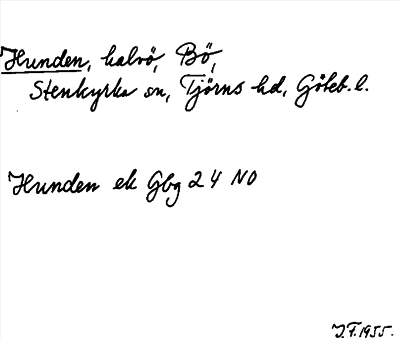 Hunden, halvö, Bö,
Stenkyrka sn, Tjörns hd, Göteb. l.
Hunden ek Gbg 24 NO
J.F. 1955.